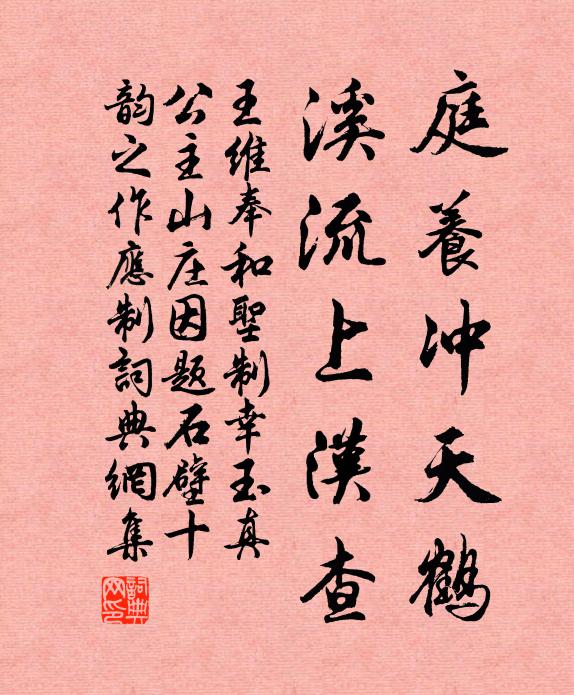 庭養冲天鶴
溪流上漢查
王維奉和聖制幸玉真
公主山庄因題石壁十
韵之作應制詞典網集
詞典
网印